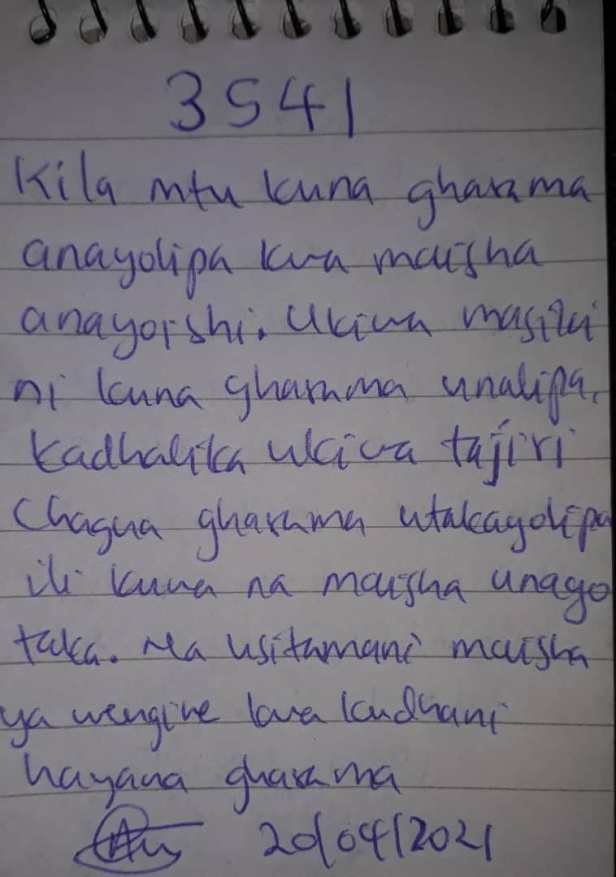 3541
Kila mtu kuna gharama
anayolipa kwa maisha
anayoishi. Ukiwa masiki
ni kuna gharama unalipa,
kadhalika ukiwa tajiri
Chagua gharama utakayolipa
ili kuwa na maisha unayo
taka. Na usitamani maisha
ya wengine kwa kudhani
hayana gharama
20/04/2021